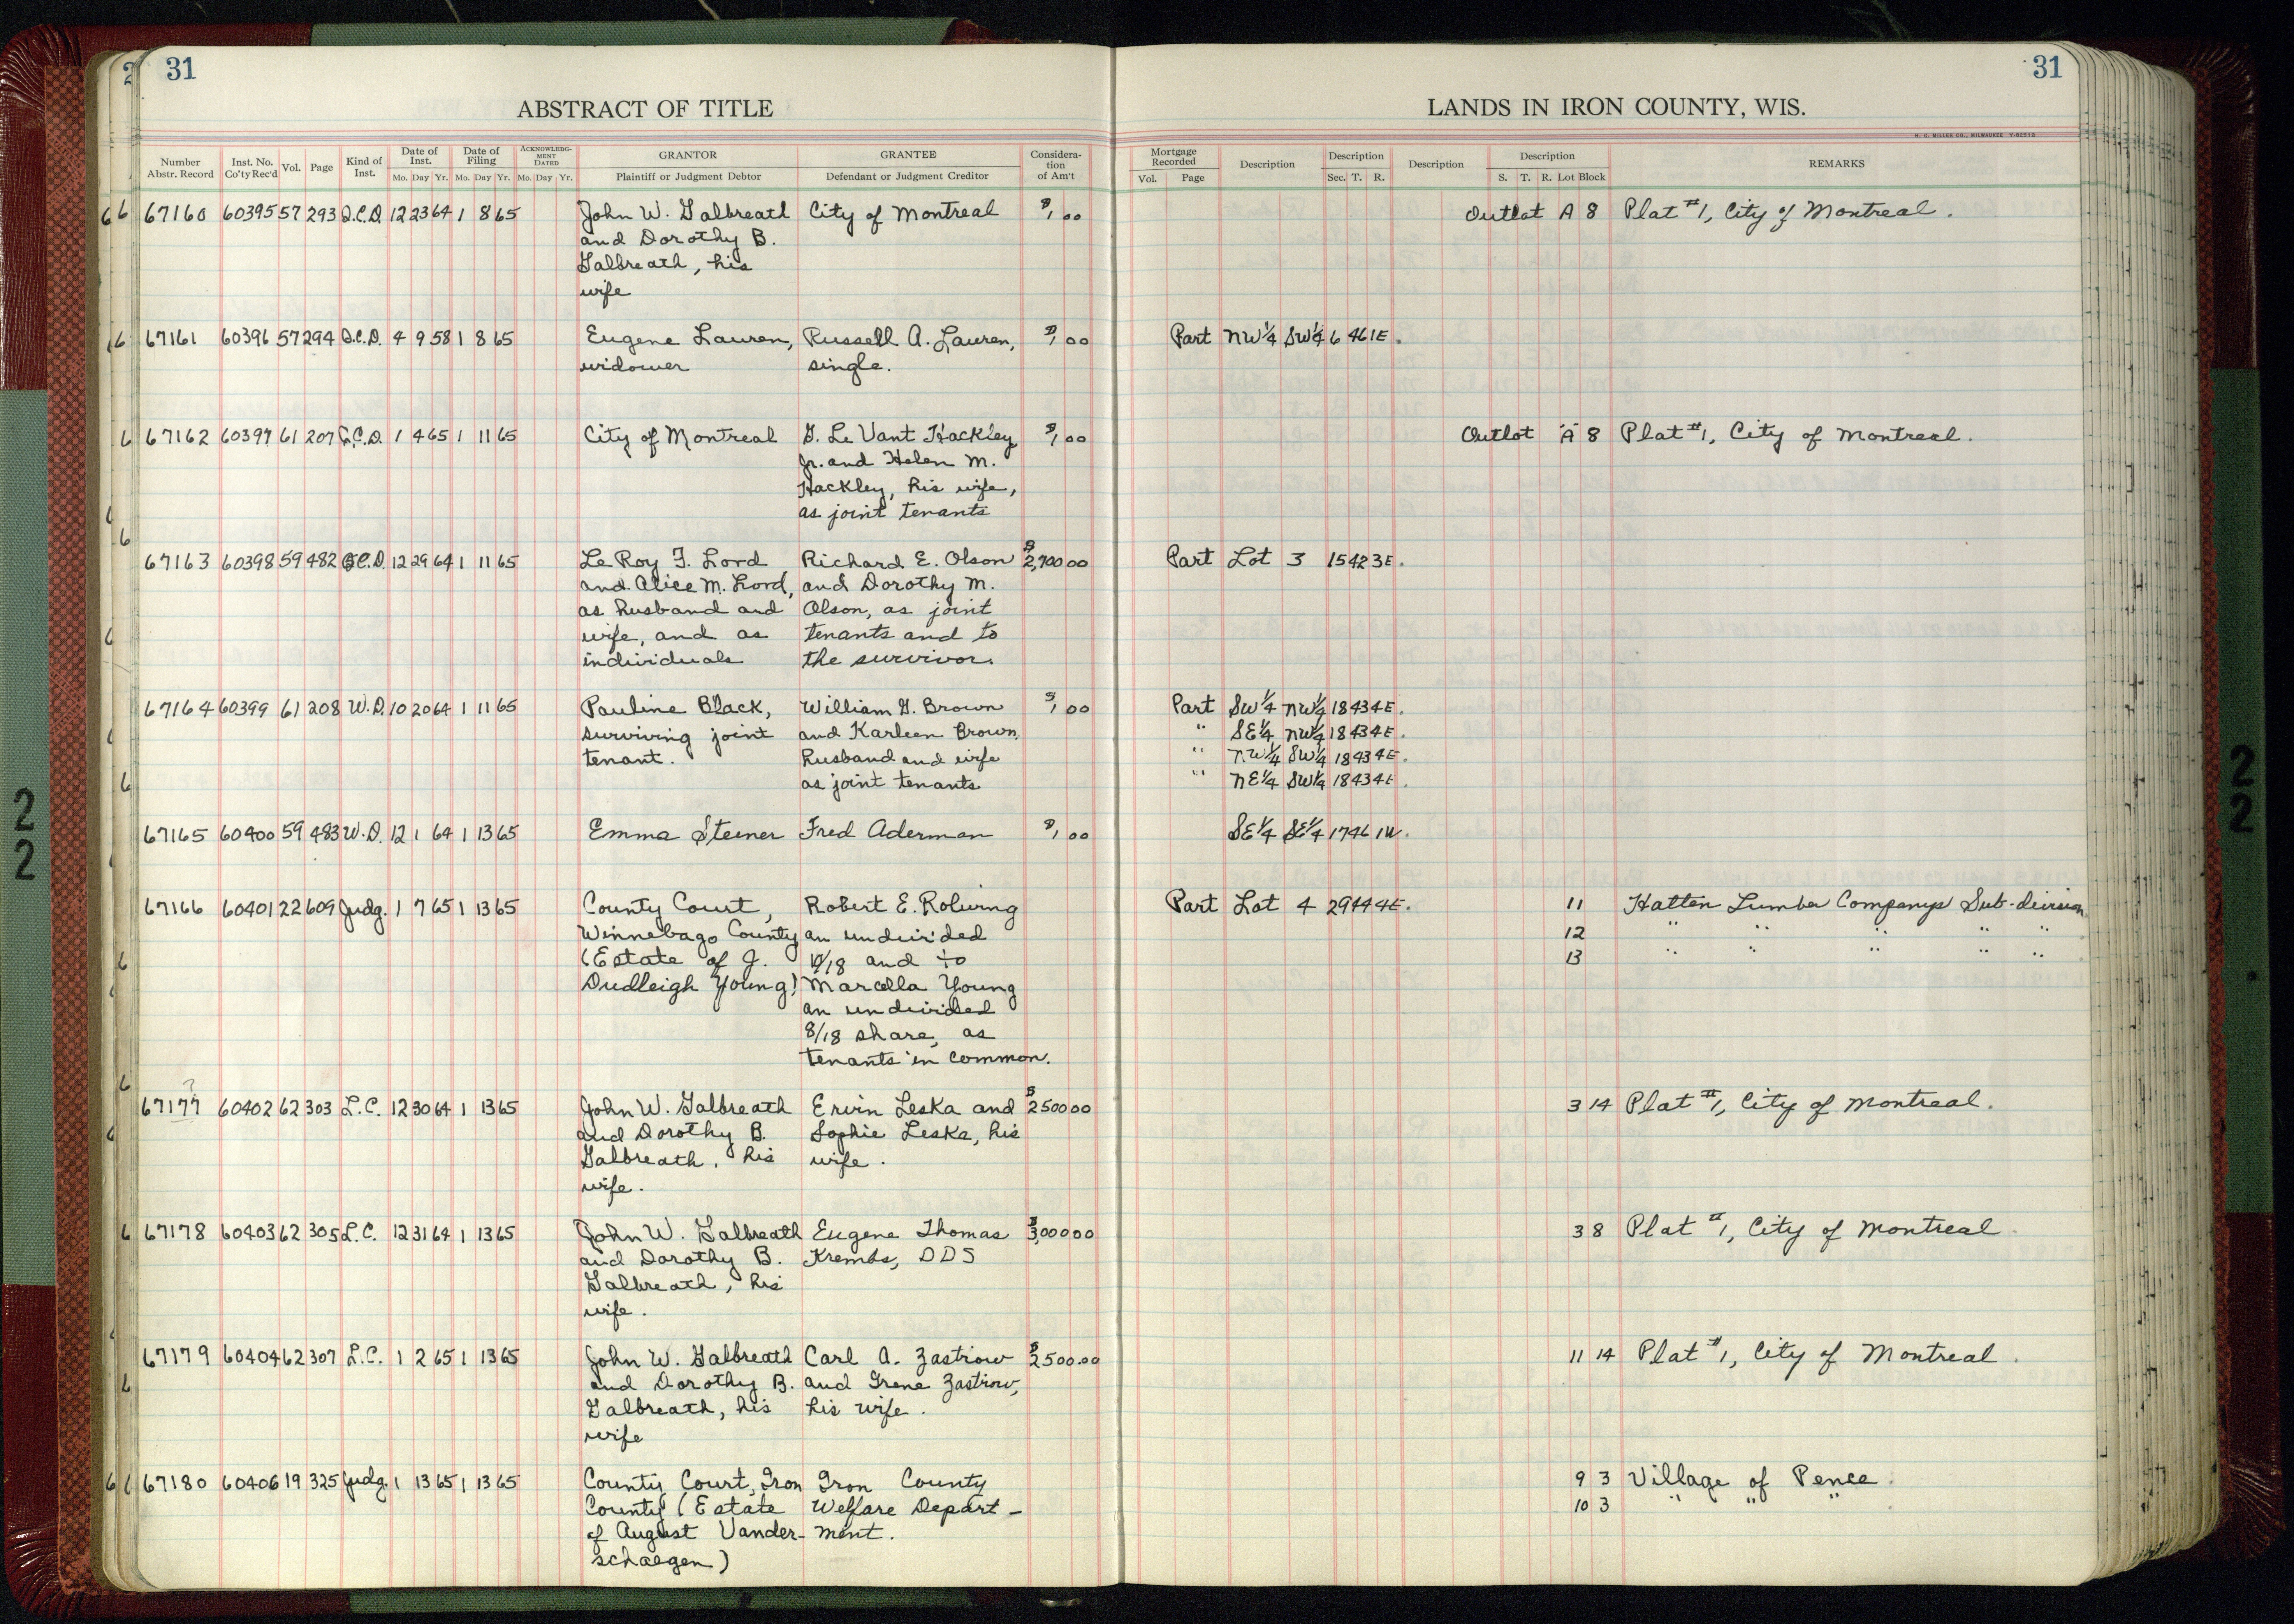 31
31
ABSTRACT OF TITLE
LANDS IN IRON COUNTY, WIS.
H. C. MILLER CO., MILWAUKEE
Number Abstr. Record Inst. No. Co'ty Rec'd Vol. Page Kind of Inst. Date of Inst. Mo. Day Yr. Date of Filing Mo. Day Yr. ACKNOWLEDGMENT DATED Mo. Day Yr. GRANTOR Plaintiff or Judgment Debtor GRANTEE Defendant or Judgment Creditor Consideration of Am't
Mortgage Recorded Vol. Page Description Description Sec. T. R. Description Description S. T. R. Lot Block REMARKS
67160 60395 57 293 Q.C.D. 12 23 64 1 8 65 John W. Galbreath City of Montreal $1,00 Outlot A 8 Plat #1, City of Montreal.
and Dorothy B.
Galbreath, his
wife
67161 60396 57 294 Q.C.D. 4 9 58 1 8 65 Eugene Lauren, Russell A. Lauren, $1,00 Part NW¼ SW¼ 6 46 1E.
widower single.
67162 60397 61 207 Q.C.D. 1 4 65 1 11 65 City of Montreal G. Le Vant Hackley $1,00 Outlot "A" 8 Plat #1, City of Montreal.
Jr. and Helen M.
Hackley, his wife,
as joint tenants
67163 60398 59 482 Q.C.D. 12 29 64 1 11 65 Le Roy F. Lord Richard E. Olson $2,700 00 Part Lot 3 15 42 3E.
and Alice M. Lord, and Dorothy M.
as husband and Olson, as joint
wife, and as tenants and to
individuals the survivor.
67164 60399 61 208 W.D. 10 20 64 1 11 65 Pauline Black, William G. Brown $1,00 Part SW¼ NW¼ 18 43 4E.
surviving joint and Karleen Brown, " SE¼ NW¼ 18 43 4E.
tenant. husband and wife " NW¼ SW¼ 18 43 4E.
as joint tenants " NE¼ SW¼ 18 43 4E.
67165 60400 59 483 W.D. 12 1 64 1 13 65 Emma Steener Fred Aderman $1,00 SE¼ SE¼ 17 46 1W.
67166 60401 22 609 Judg. 1 7 65 1 13 65 County Court, Robert E. Part Lot 4 29 44 4E. 11 Hatten Lumber Companys Sub-division
Winnebago County an undivided 12 " " " " "
(Estate of J. 10/18 and to 13 " " " " "
Dudleigh Young) Marcella Young
an undivided
8/18 share, as
tenants in common.
?
67177 60402 62 303 L.C. 12 30 64 1 13 65 John W. Galbreath Ervin Leska and $2500 00 3 14 Plat #1, City of Montreal.
and Dorothy B. Sophie Leska, his
Galbreath, his wife.
wife.
67178 60403 62 305 L.C. 12 31 64 1 13 65 John W. Galbreath Eugene Thomas $3,000 00 3 8 Plat #1, City of Montreal.
and Dorothy B. Krembs, DDS
Galbreath, his
wife.
67179 60404 62 307 L.C. 1 2 65 1 13 65 John W. Galbreath Carl A. Zastrow $2500.00 11 14 Plat #1, City of Montreal.
and Dorothy B. and Irene Zastrow,
Galbreath, his his wife.
wife
67180 60406 19 325 Judg. 1 13 65 1 13 65 County Court, Iron Iron County 9 3 Village of Pence.
County (Estate Welfare Depart- 10 3 " " "
of August Vander- ment.
schaegen)
22
22